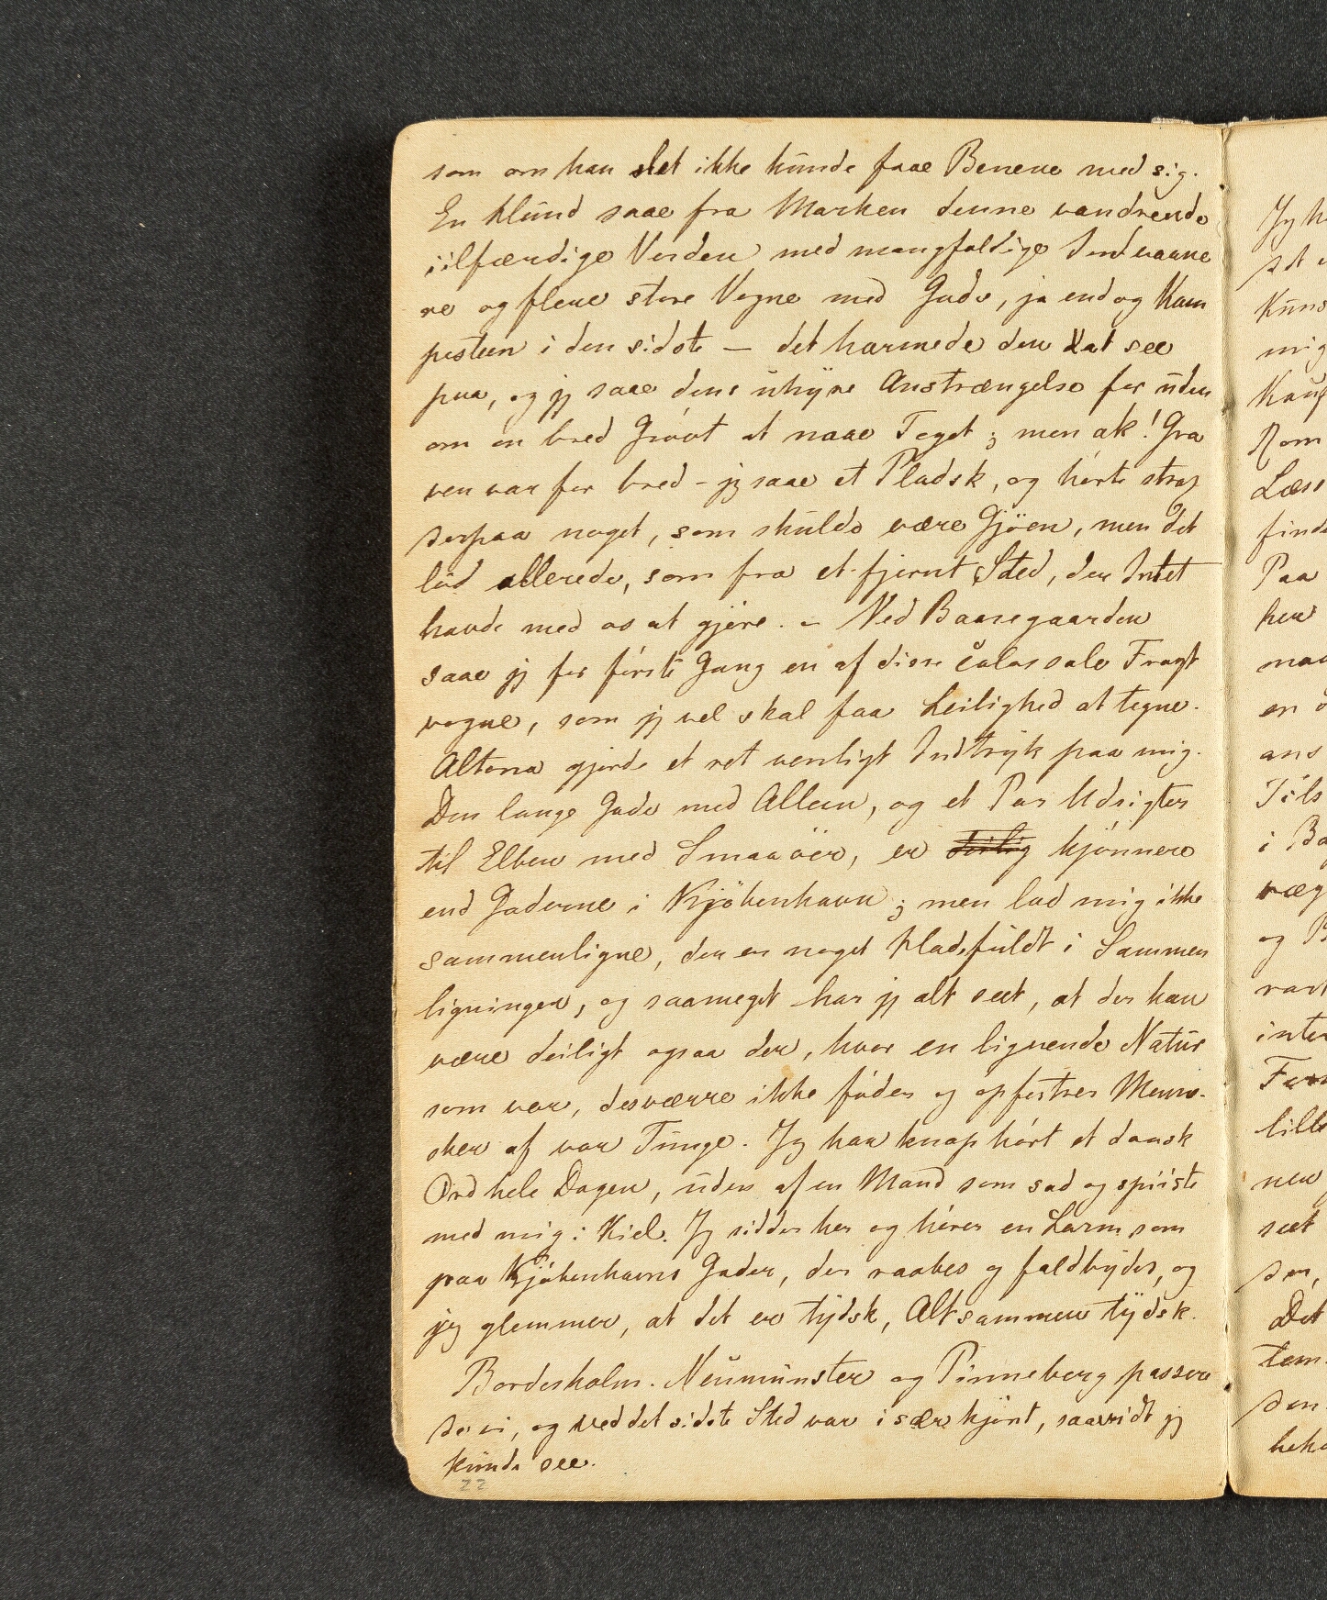 som om han slet ikke kunde faae Benene med sig.
En Hund saae fra Marken denne vandrende
iilfærdige Verden med mangfoldige Indvaane
re og flere store Vogne med Gods, ja endog Kam
pesteen i den sidste — det harmede den at see
paa, og jg saae dens uhyre Anstrængelse for uden
om en bred Grövt at naae Toget; men ak! Gra
ven var for bred – jg saae et Pladsk, og hörte strax
derpaa noget, som skulde være Gjöen, men det
löd allerede, som fra et fjernt Sted, der Intet
havde med os at gjöre. – Ved Banegaarden
saae jg for förste Gang en af disse colossale Fragt
vogne, som jg vel skal faa Leilighed at tegne.
Altona gjorde et ret venligt Indtryk paa mig.
Den lange Gade med Alleen, og et Par Udsigter
til Elben med Smaaöer, er deilig kjönnere
end Gaderne i Kjöbenhavn; men lad mig ikke
sammenligne, der er noget Hadefuldt i Sammen
ligninger, og saameget har jg alt seet, at der kan
være deiligt ogsaa der, hvor en lignende Natur
som vor, desværre ikke föder og opfostrer Menne-
sker af vor Tunge. Jg har knap hört et dansk
Ord hele Dagen, uden af en Mand som sad og spiiste
med mig i Kiel. Jg sidder her og hörer en Larm som
paa Kjöbenhavns Gader, der raabes og faldbydes, og
jeg glemmer, at det er tydsk, Altsammen tydsk.
Bordesholm. Neumünster og Pinneberg passere
de vi, og ved det sidste Sted var især kjönt, saavidt jg
kunde see.
22